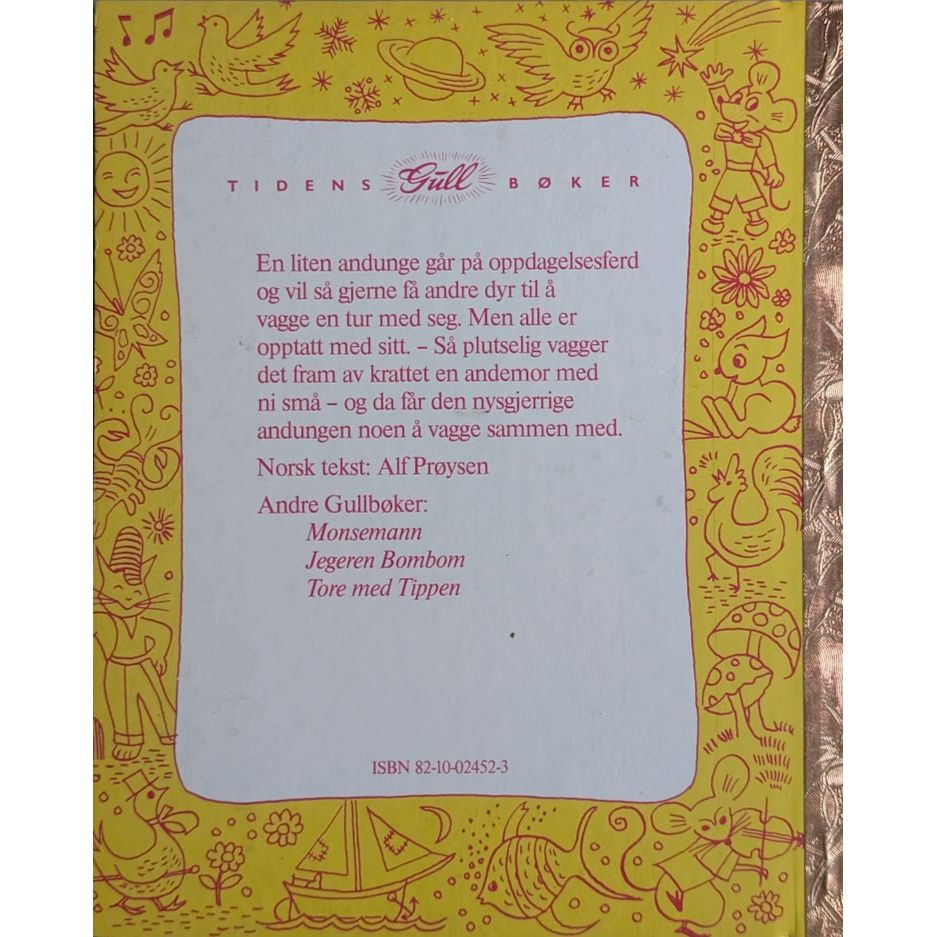 TIDENS Gull BØKER
En liten andunge går på oppdagelsesferd
og vil så gjerne få andre dyr til å
vagge en tur med seg. Men alle er
opptatt med sitt. – Så plutselig vagger
det fram av krattet en andemor med
ni små – og da får den nysgjerrige
andungen noen å vagge sammen med.
Norsk tekst: Alf Prøysen
Andre Gullbøker:
Monsemann
Jegeren Bombom
Tore med Tippen
ISBN 82-10-02452-3